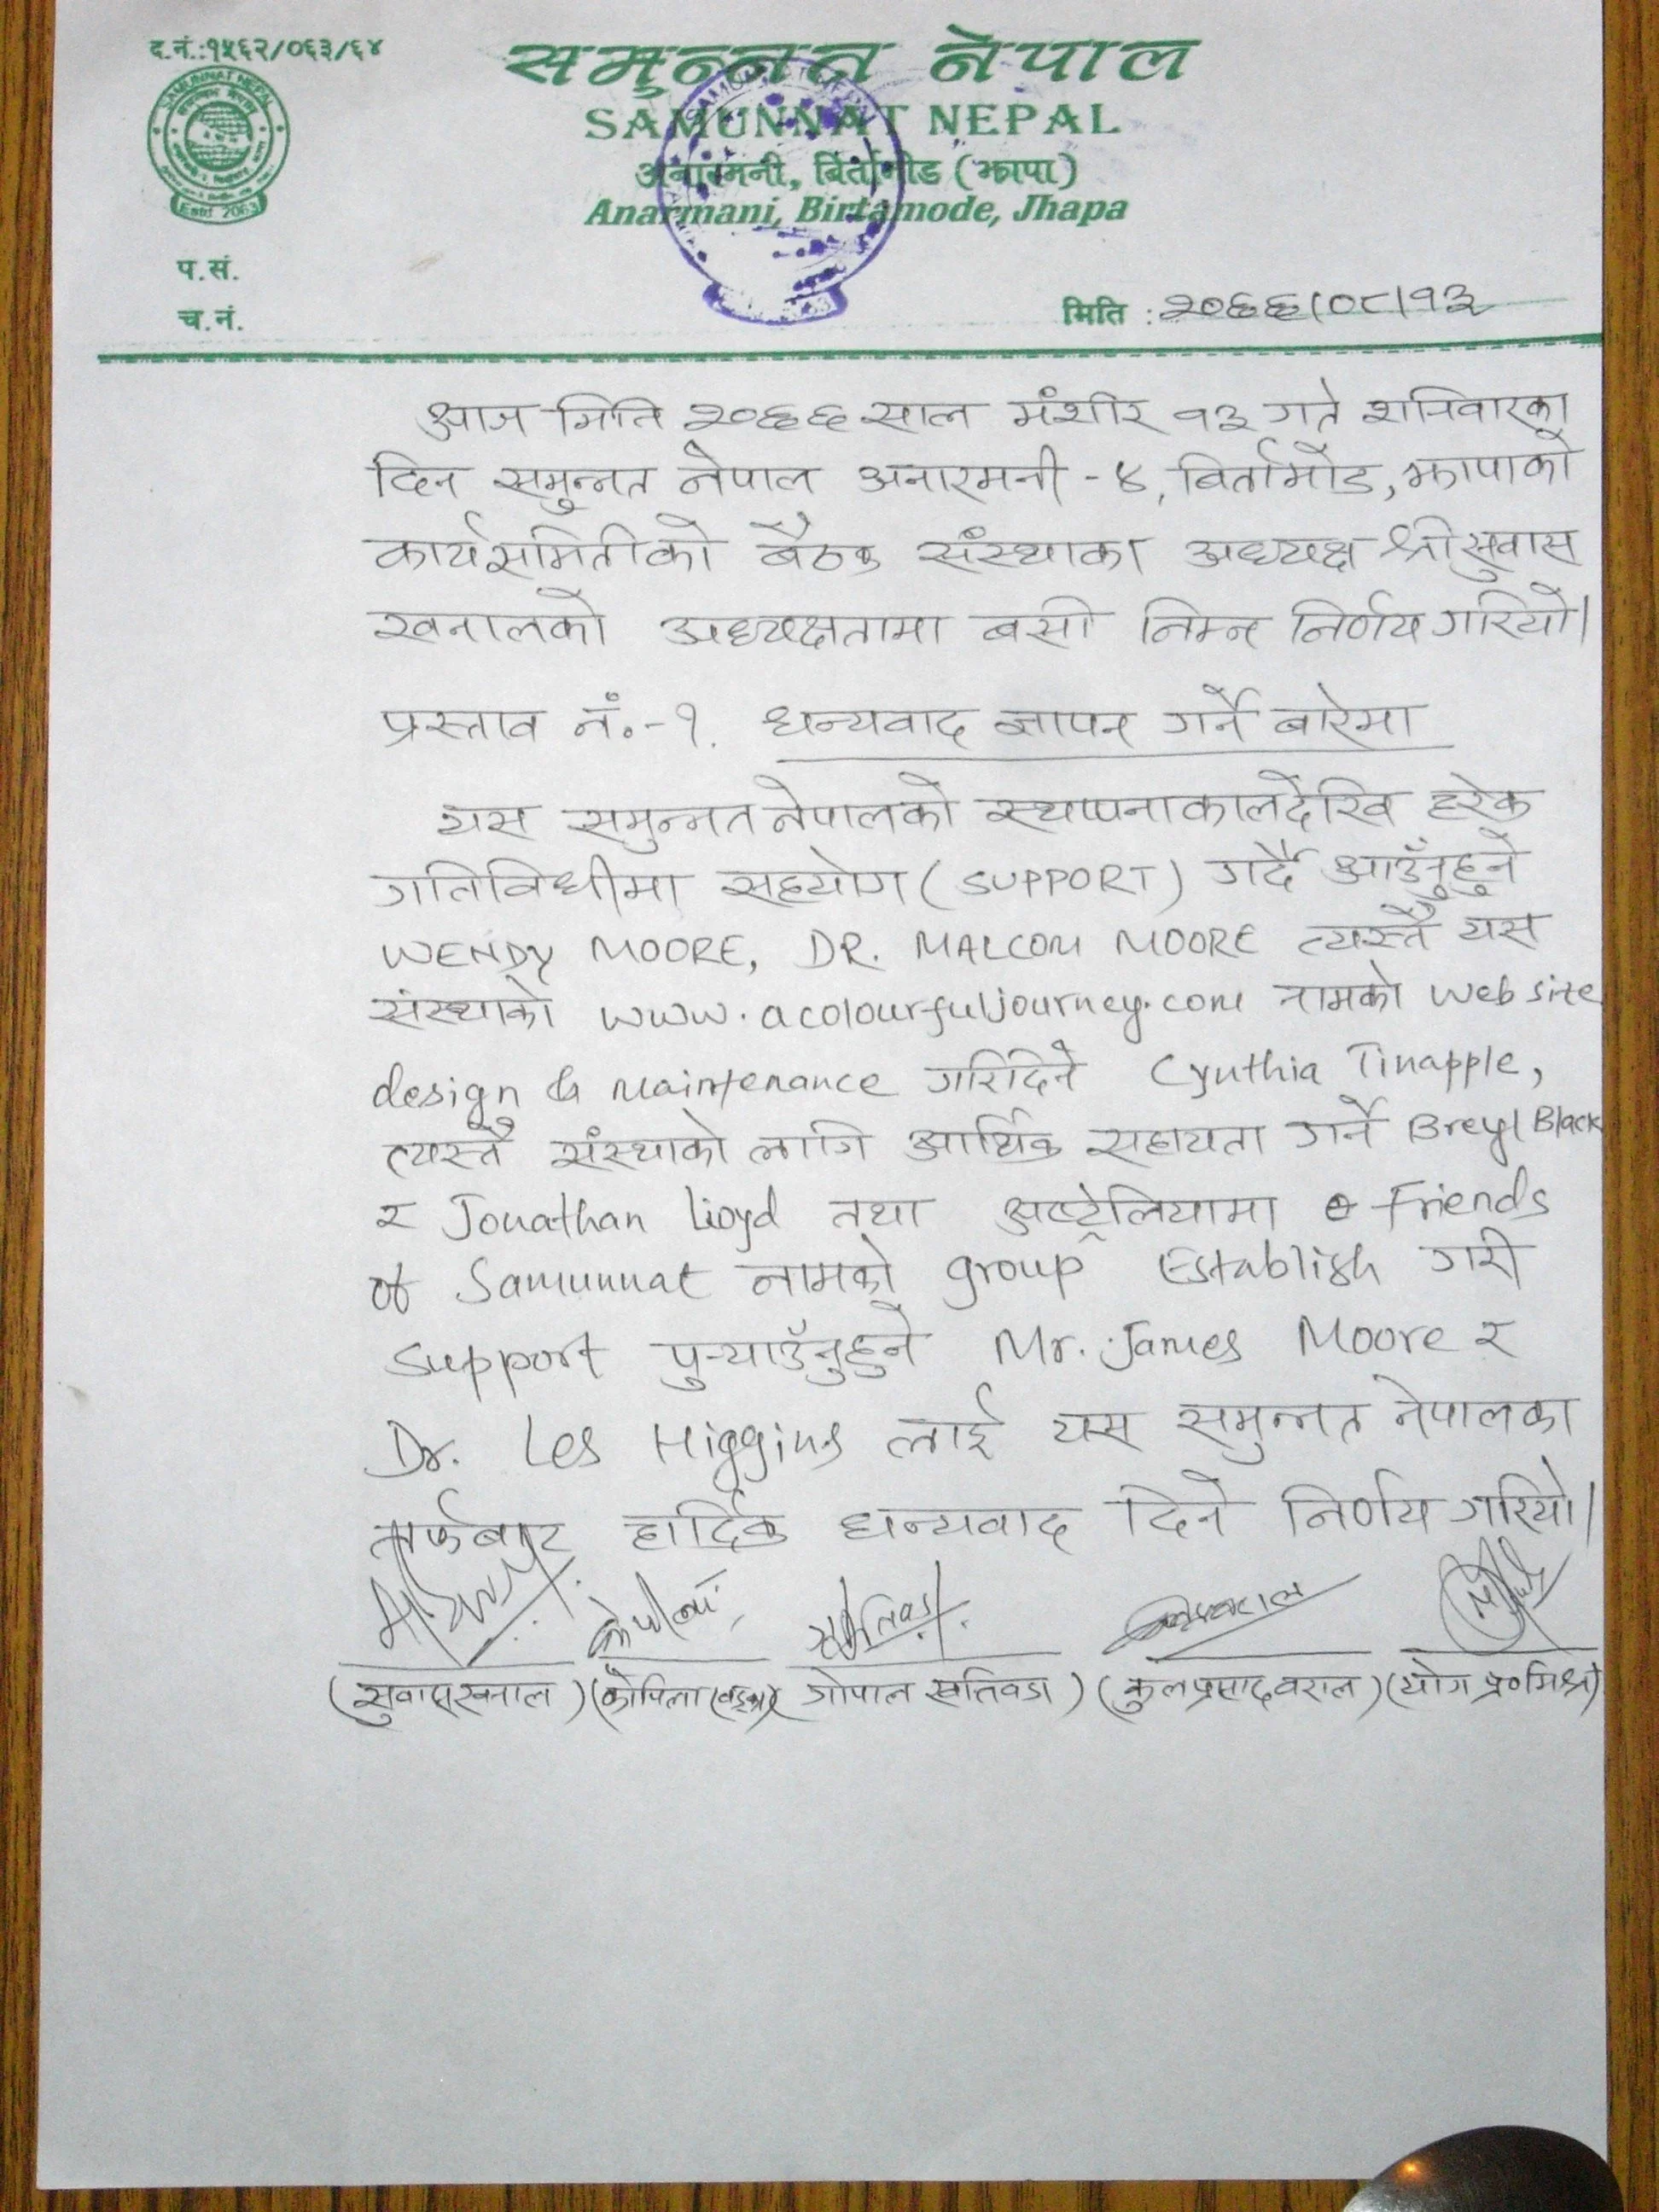 द.नं.:१५६२/०६३/६४
समुन्नत नेपाल
SAMUNNAT NEPAL
SAMUNNAT NEPAL
अनारमनी, बिर्तामोड (झापा)
Anarmani, Birtamode, Jhapa
Estd 2063
प.सं.
च.नं.
मिति : २०६६।०८।१३
आज मिति २०६६ साल मंशीर १३ गते शनिवारका
दिन समुन्नत नेपाल अनारमनी -४, बिर्तामोड, झापाको
कार्यसमितीको बैठक संस्थाका अध्यक्ष श्री सुवास
खनालको अध्यक्षतामा बसी निम्न निर्णय गरियो।
प्रस्ताव नं.-१. धन्यवाद ज्ञापन गर्ने बारेमा
यस समुन्नत नेपालको स्थापनाकालदेखि हरेक
गतिविधीमा सहयोग (SUPPORT) गर्दै आउँनुहुने
WENDY MOORE, DR. MALCOM MOORE त्यस्तै यस
संस्थाको www.acolourfuljourney.com नामको web site
design & maintenance गरिदिने Cynthia Tinapple,
त्यस्तै संस्थाको लागि आर्थिक सहायता गर्ने Breyl Black
र Jonathan Lioyd तथा अष्ट्रेलियामा Friends
of Samunnat नामको group Establish गरी
support पुर्‍याउँनुहुने Mr. James Moore र
Dr. Les Higgins लाई यस समुन्नत नेपालका
तर्फबाट हार्दिक धन्यवाद दिने निर्णय गरियो।
(सुवास खनाल) (कोपिला) (गोपाल खतिवडा) (कुलप्रसाद वराल) (योग प्र० मिश्र)